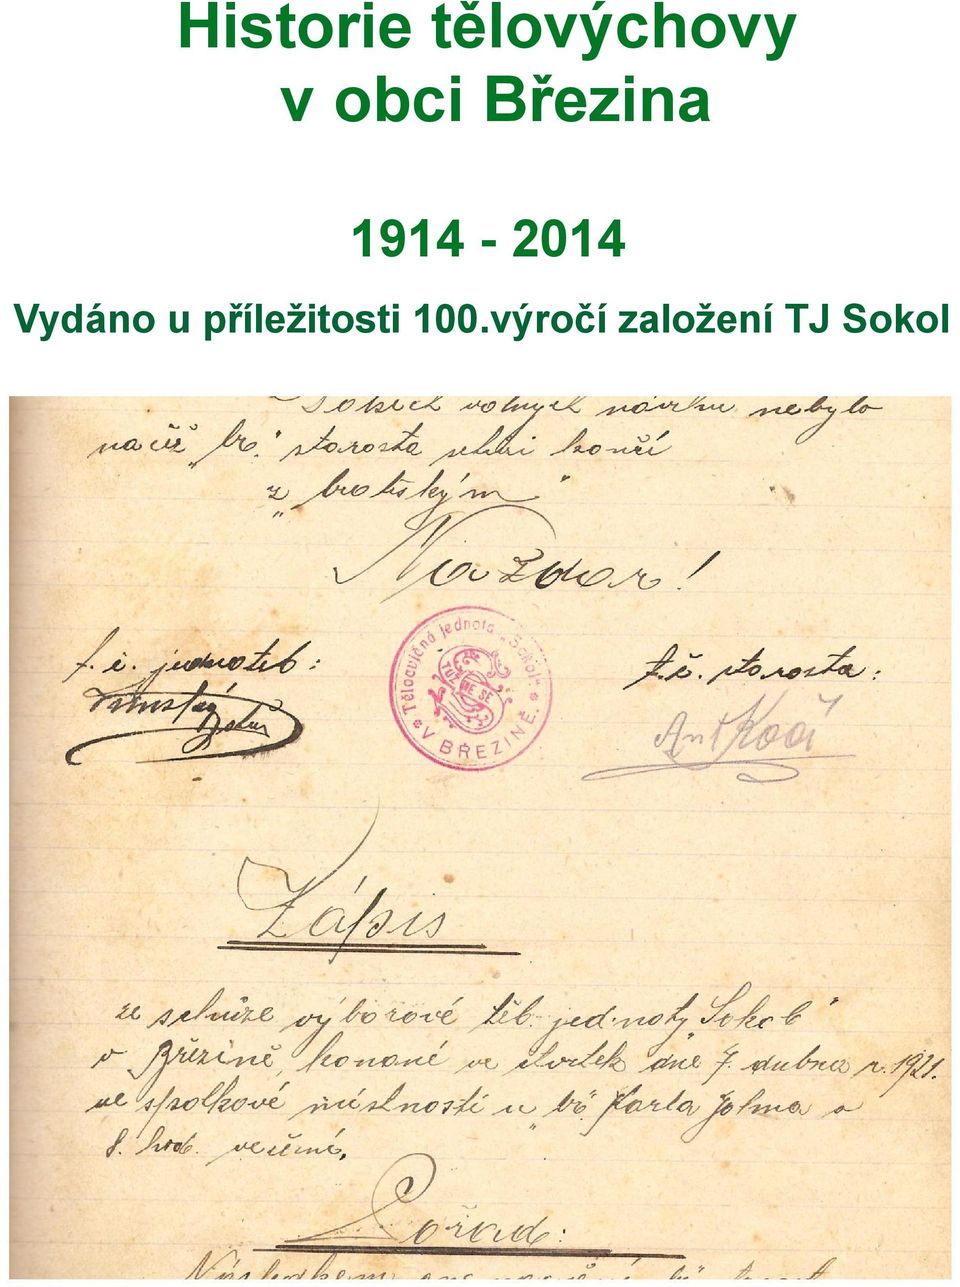 Historie tělovýchovy
v obci Březina
1914 - 2014
Vydáno u příležitosti 100.výročí založení TJ Sokol
volných návrhu nebylo
načež „br." starosta schůzi končí
z „bratrským"
Nazdar!
Tělocvičná jednota „Sokol" * V BŘEZINĚ. *
TUŽME SE
t. č. jednatel:
t.č. starosta:
Ant Kočí
Zápis
ze schůze výborové těl. jednoty „Sokol"
v Březině, konané ve čtvrtek dne 7. dubna r. 1921.
ve spolkové místnosti u „br." Karla Johna v
8. hod. večerní.
Pořad: